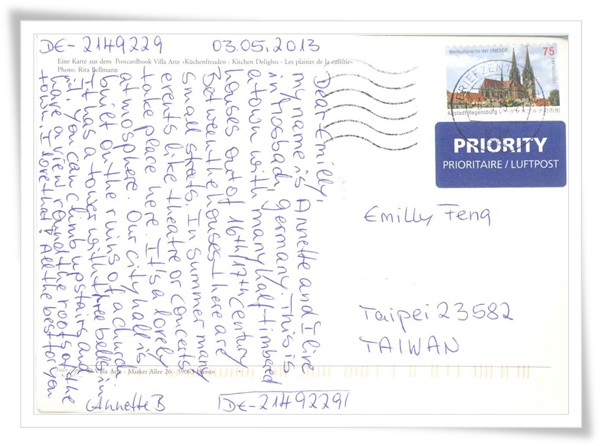 DE-2149229
03.05.2013
Eine Karte aus dem Postcardbook Villa Arte «Küchenfreuden · Kitchen Delights · Les plaisirs de la cuisine»
Photo: Rita Bellmann
Dear Emilly,
my name is Annette and I live
in Mosbach, Germany. This is
a town with many half-timbered
houses out of 16th/17th century
Between the houses there are
small strats. In summer many
events like theatre or concerts
take place here. It's a lovely
atmosphere. Our city hall is
built on the ruins of a church.
It has a tower with three bells in
it. You can climb upstairs and
have a view round the roofs of the
town. I love that! All the best for you
Annette B
DE-2149229
BRIEFZEN
UNESCO
75
Altstadt Regensburg
PRIORITY
PRIORITAIRE / LUFTPOST
Emilly Feng
Taipei 23582
TAIWAN